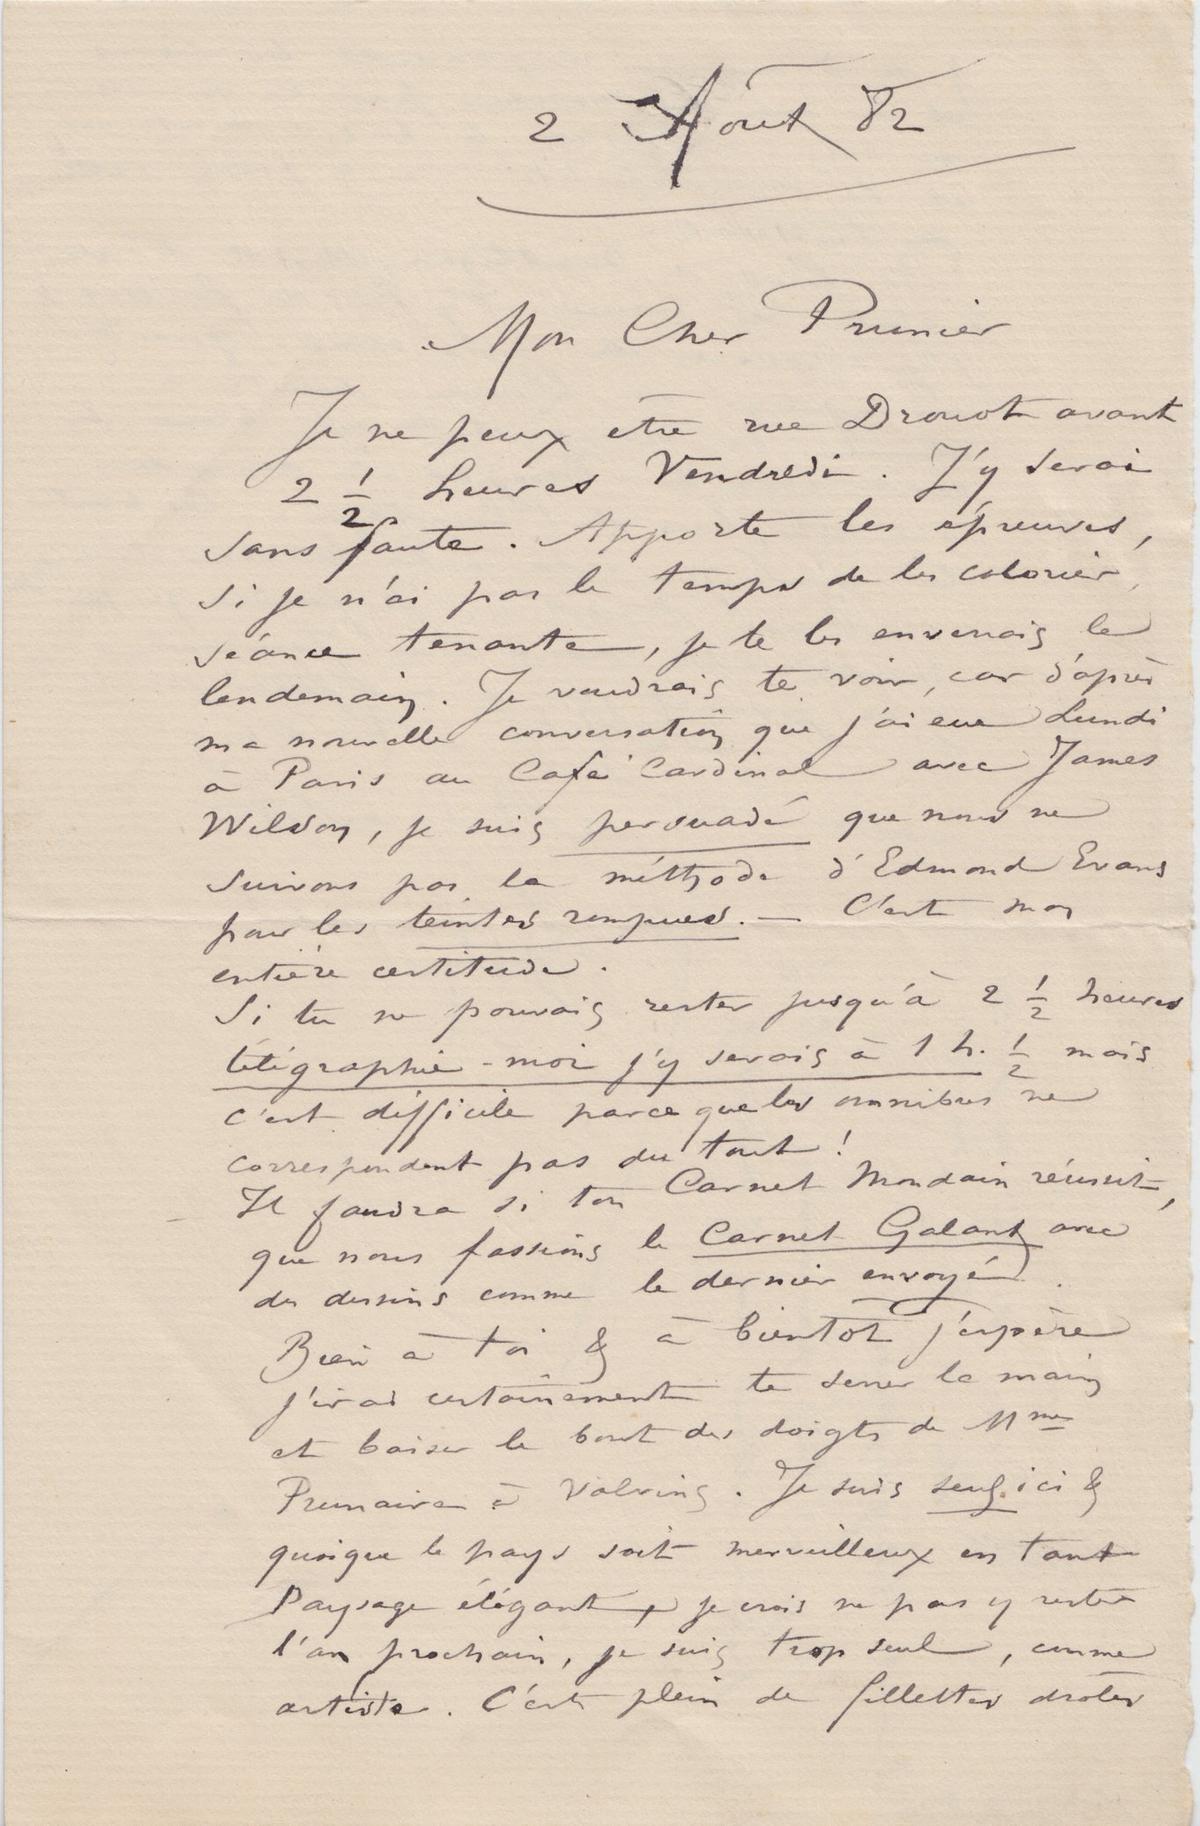 2 Août 82
Mon Cher Prunier
Je ne peux être rue Drouot avant
2 1/2 heures Vendredi. J'y serai
sans faute. Apporte les épreuves,
si je n'ai pas le temps de les colorier,
séance tenante, je te les enverrais le
lendemain. Je voudrais te voir, car d'après
ma nouvelle conversation que j'ai eue Lundi
à Paris au Café Cardinal avec James
Wilson, je suis persuadé que nous ne
suivons pas la méthode d'Edmond Evans
pour les teintes rompues. — C'est mon
entière certitude.
Si tu ne pouvais rester jusqu'à 2 1/2 heures
télégraphie-moi j'y serais à 1 h. 1/2 mais
c'est difficile parce que les omnibus ne
correspondent pas du tout!
Il faudra si ton Carnet Mondain réussit,
que nous fassions le Carnet Galant avec
des dessins comme le dernier envoyé.
Bien à toi & à bientôt j'espère
j'irai certainement te serrer la main
et baiser le bout des doigts de Mme
Prunaire à Valvins. Je suis seul ici &
quoique le pays soit merveilleux en tant
Paysage élégant, je crois ne pas y rester
l'an prochain, je suis trop seul, comme
artiste. C'est plein de fillettes drôles